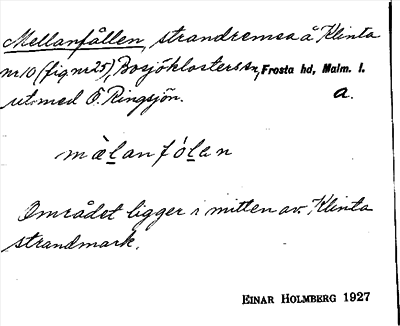 Mellanfållen, strandremsa å Klinta
nr 10 (fig nr 25), Bosjöklosters sn, Frosta hd, Malm. l.
ut med Ö. Ringsjön. a.
mȧlanfólan
Området ligger i mitten av Klinta
strandmark.
EINAR HOLMBERG 1927